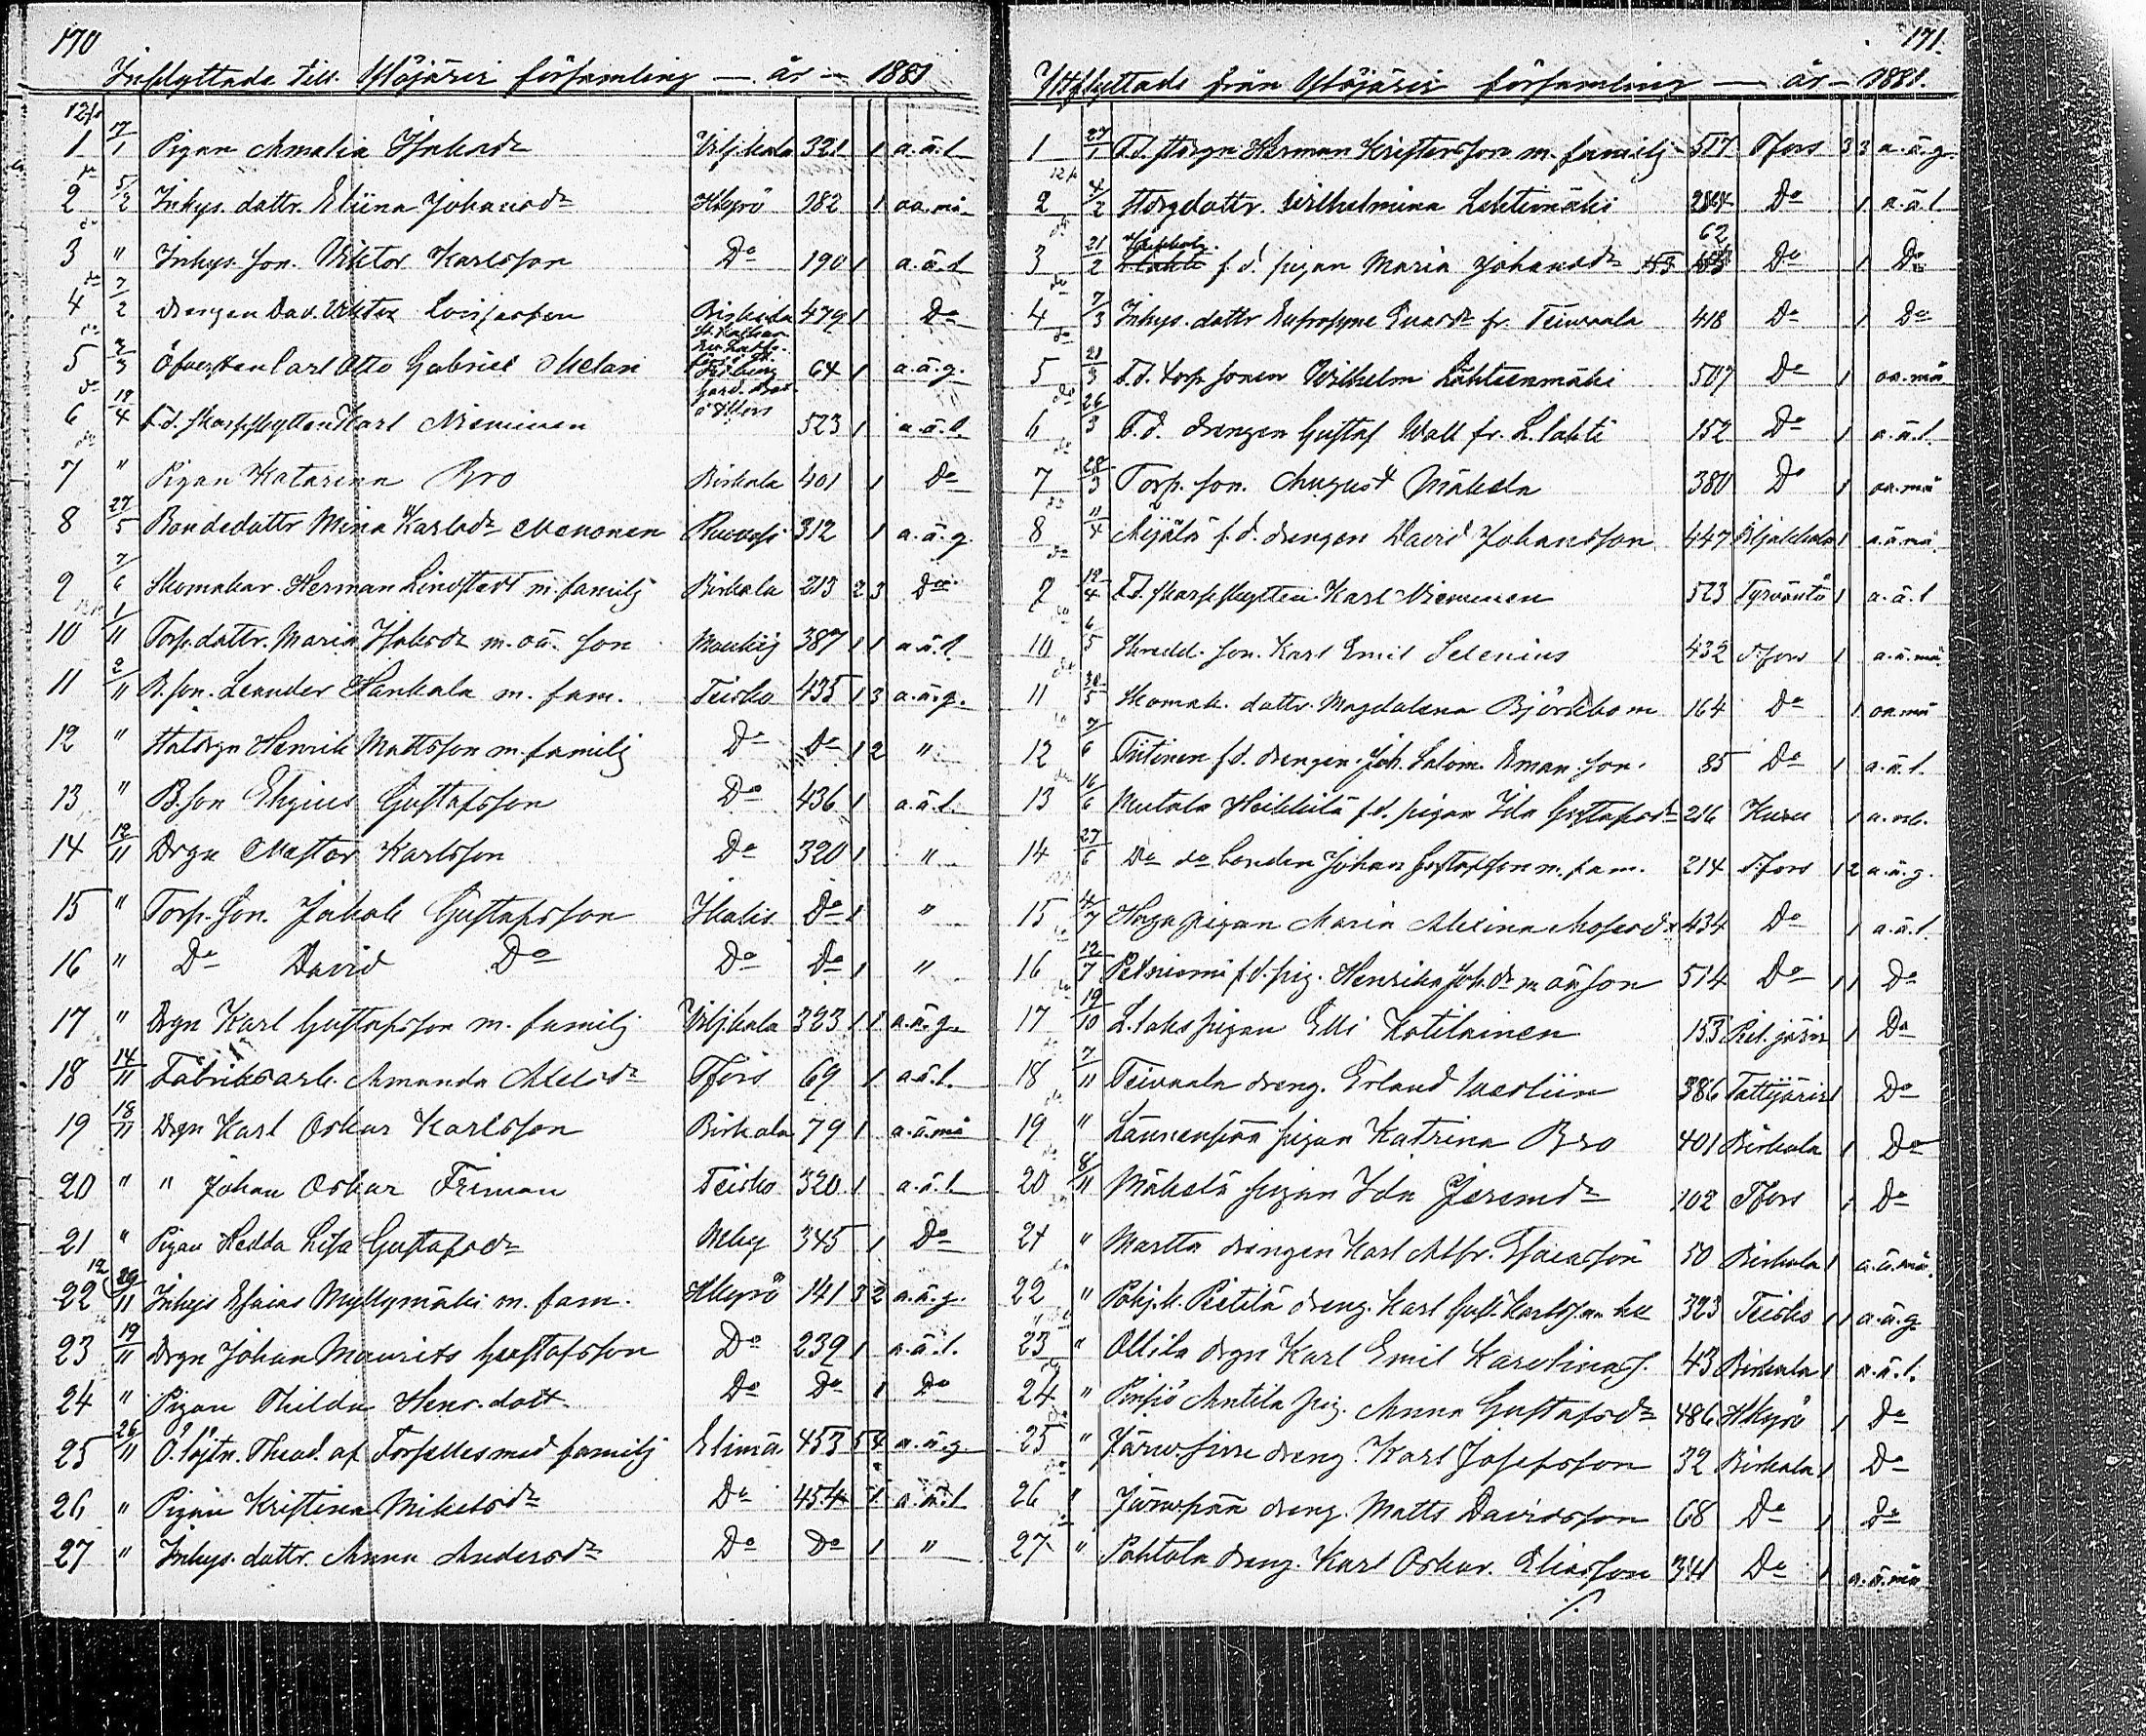 170
Inflyttade till Ylöjärvi församling — år — 1881
1 17/1 Pigan Amalia Isaksdr Viljkala 321 1 a.ä.l.
2 5/2 Inhys. dottr. Eliina Johansdr HKyrö 182 1 oa.må
3 " Inhys. son. Viktor Karlsson Do 190 1 a.ä.l.
4 7/2 drengen Dav. Viktor Birkala 479 1 Do
5 2/3 Öfversten Carl Otto Gabriel Melan 64 1 a.ä.g.
6 19/4 f.d. skarpskytten Karl Nieminen 523 1 a.ä.l.
7 " Pigan Katarina Bro Birkala 401 1 Do
8 27/5 Bondedottr Mina Karlsdr Menonen Ruovesi 312 1 a.ä.g.
9 7/6 Skomakar. Herman Lindstedt m. familj Birkala 213 2 3 Do
10 1/11 Torp. dottr. Maria Isaksdr m. oä. son Mouhij 387 1 1 a.ä.l.
11 2/11 B. son. Leander Hankala m. fam. Teisko 435 1 3 a.ä.g.
12 " Statdrgn Henrik Mattsson m. familj Do Do 1 2 "
13 " B. son Eligius Gustafsson Do 436 1 a.ä.l.
14 12/11 Drgn Nestor Karlsson Do 320 1 "
15 " Torp. son. Jakob Gustafsson Ikalis Do 1 "
16 " Do David Do Do Do 1 "
17 " Drgn Karl Gustafsson m. familj Viljkala 323 1 1 a.ä.g.
18 14/11 Fabriksarb. Amanda Tfors 69 1 a.ä.l.
19 18/11 Drgn Karl Oskar Karlsson Birkala 79 1 a.ä.må
20 " " Johan Oskar Friman Teisko 320 1 a.ä.l.
21 " Pigan Hedda Lisa Gustafsdr 345 1 Do
22 29/11 Inhys Esaias Myllymäki m. fam. HKyrö 141 3 2 a.ä.g.
23 19/11 Drgn Johan Maurits Gustafsson Do 239 1 a.ä.l.
24 " Pigan Thilda Henr. dott. Do Do 1 Do
25 26/11 Ö. löjtn. Thead. af Forselles med familj Elimä 453 5 4 a.ä.g.
26 " Pigan Kristina Mikelsdr Do 454 1 a.ä.l.
27 " Inhys. dottr. Anna Andersdr Do Do 1 "
171.
Utflyttade från Ylöjärvi församling — år — 1881.
1 27/1 F.d. stdrgn Herman Kristersson m. familj 517 Tfors 3 3 a.ä.g.
2 4/2 Storpdottr. Wilhelmina Lehtimäki Do 1 a.ä.l.
3 21/2 f.d. pigan Maria Johansdr 62 Do 1 Do
4 7/3 Inhys. dottr Eufrosyne Evardr fr. Teivaala 418 Do 1 Do
5 21/3 F.d. torp. sonen Wilhelm Lähteenmäki 507 Do 1 oa.må
6 26/3 F.d. drengen Gustaf Wall fr. L. lahti 152 Do 1 a.ä.l.
7 28/3 Torp. son. August Mäkelä 380 Do 1 oa.må
8 11/4 Mejälä f.d. drengen David Johansson 447 1 a.ä.må
9 19/4 F.d. skarpskytten Karl Nieminen 523 Tyrväntö 1 a.ä.l
10 6/5 Skredd. son. Karl Emil Selenius 432 Tfors 1 a.ä.må.
11 30/5 Skomak. dottr. Magdalena Björkbom 164 Do 1 oa.må
12 7/6 Tiitinen f.d. drengen Joh. Salom. Eman. son. 85 Do 1 a.ä.l.
13 16/6 Mutala Heikkilä f.d. pigan Ida Gustafsdr 216 Kuru 1
14 27/6 Do do bonden Johan Gustafsson m. fam. 214 Tfors 1 2 a.ä.g.
15 4/7 Haga pigan Maria Alexina Mosesdr 434 Do 1 a.ä.l.
16 12/7 Petniemi f.d. pig. Henrika Joh.dr m oä son 514 Do 1 1 Do
17 19/10 L. laks pigan Elli Kotilainen 153 1 Do
18 7/11 Teivaala dreng. Erland 386 Tottijärvi 1 Do
19 " Länsenpää pigan Katrina Bro 401 Birkala 1 Do
20 8/11 Mäkelä pigan Ida Jeremdr 102 Tfors 1 Do
21 " Martta drengen Karl Alfr. Esaiasson 50 Birkala 1 a.ä.må.
22 " Pohj.k. Pietilä dreng. Karl Gust. Karlsson 323 Teisko 1 1 a.ä.g.
23 " Ollila drgn Karl Emil Karolinas. 43 Birkala 1 a.ä.l.
24 " Pinsiö Antila pig. Anna Gustafsdr 486 HKyrö 1 Do
25 " Järvensivu dreng. Karl Josefsson 32 Birkala 1 Do
26 " Järvenpää dreng. Matts Davidsson 68 Do 1 Do
27 " Pohtola dreng. Karl Oskar. Eliasson 341 Do 1 a.ä.må